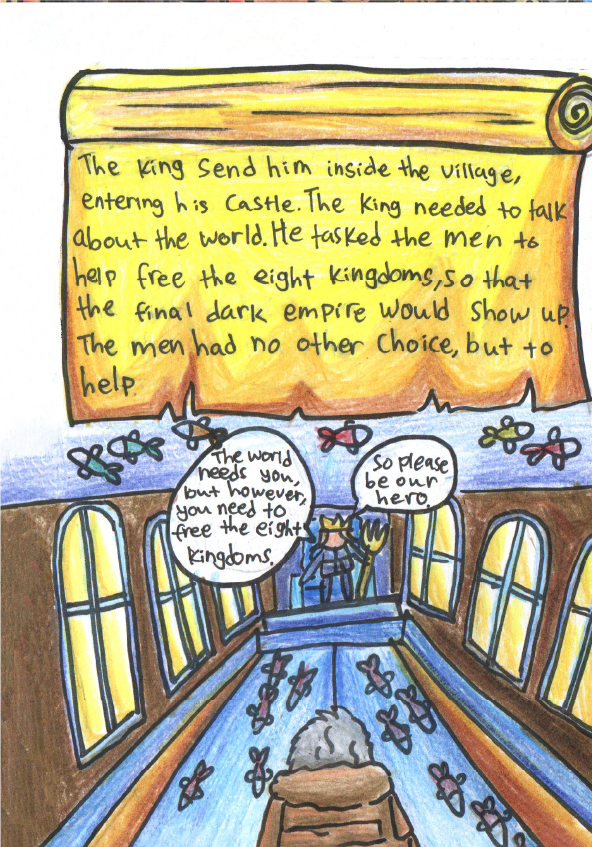 The King Send him inside the village,
entering his Castle. The King needed to talk
about the world. He tasked the men to
help free the eight kingdoms, so that
the final dark empire would show up.
The men had no other choice, but to
help.
The world
needs you,
but however,
you need to
free the eight
kingdoms.
So please
be our
hero.